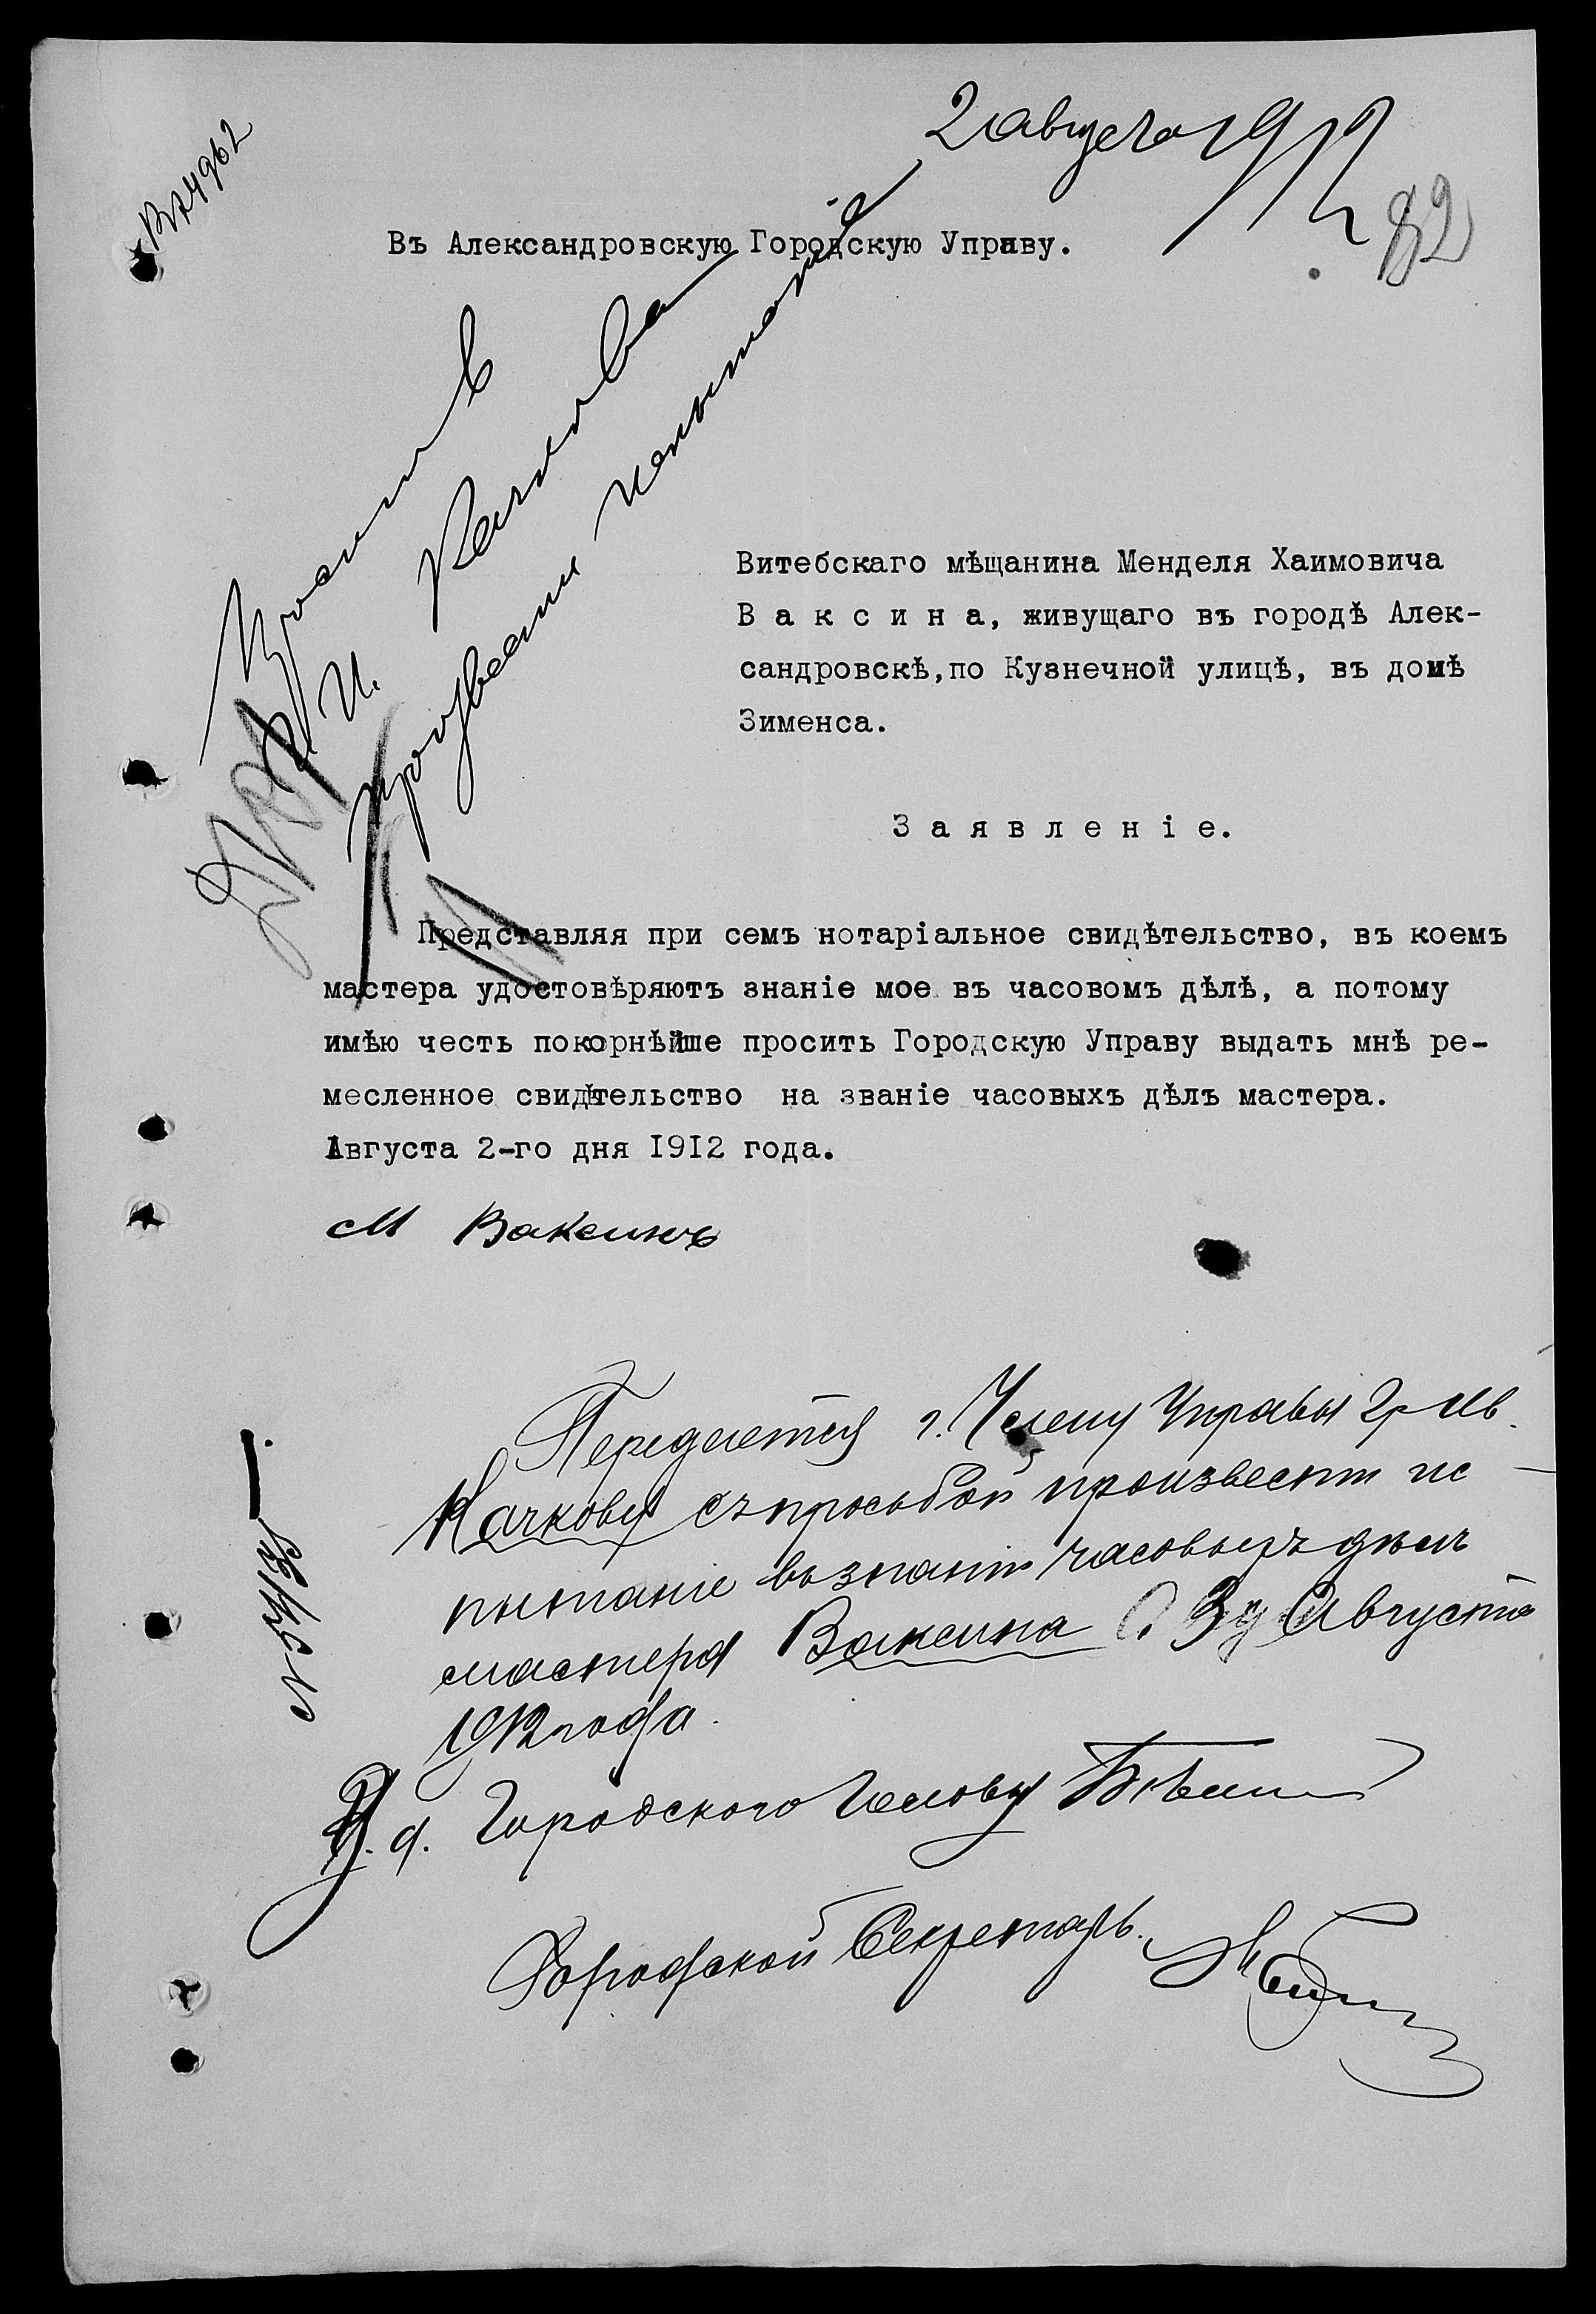 2 августа 1912
82
Въ Александровскую Городскую Управу.
Просить
Г. И. Качкова
произвести испытаніе
Витебскаго мѣщанина Менделя Хаимовича
В а к с и н а, живущаго въ городѣ Алек-
сандровскѣ, по Кузнечной улицѣ, въ домѣ
Зименса.
З а я в л е н і е.
Представляя при семъ нотаріальное свидѣтельство, въ коемъ
мастера удостовѣряютъ знаніе мое въ часовомъ дѣлѣ, а потому
имѣю честь покорнѣйше просить Городскую Управу выдать мнѣ ре-
месленное свидѣтельство на званіе часовыхъ дѣлъ мастера.
Августа 2-го дня 1912 года.
М Ваксинъ
Передается г. Члену Управы Гр. Ив.
Качкову съ просьбой произвести ис
пытаніе въ знаніи часовыхъ дѣлъ
мастера Ваксина. 3 Августа
1912 года.
И. д. Городского Головы
Городской Секретарь